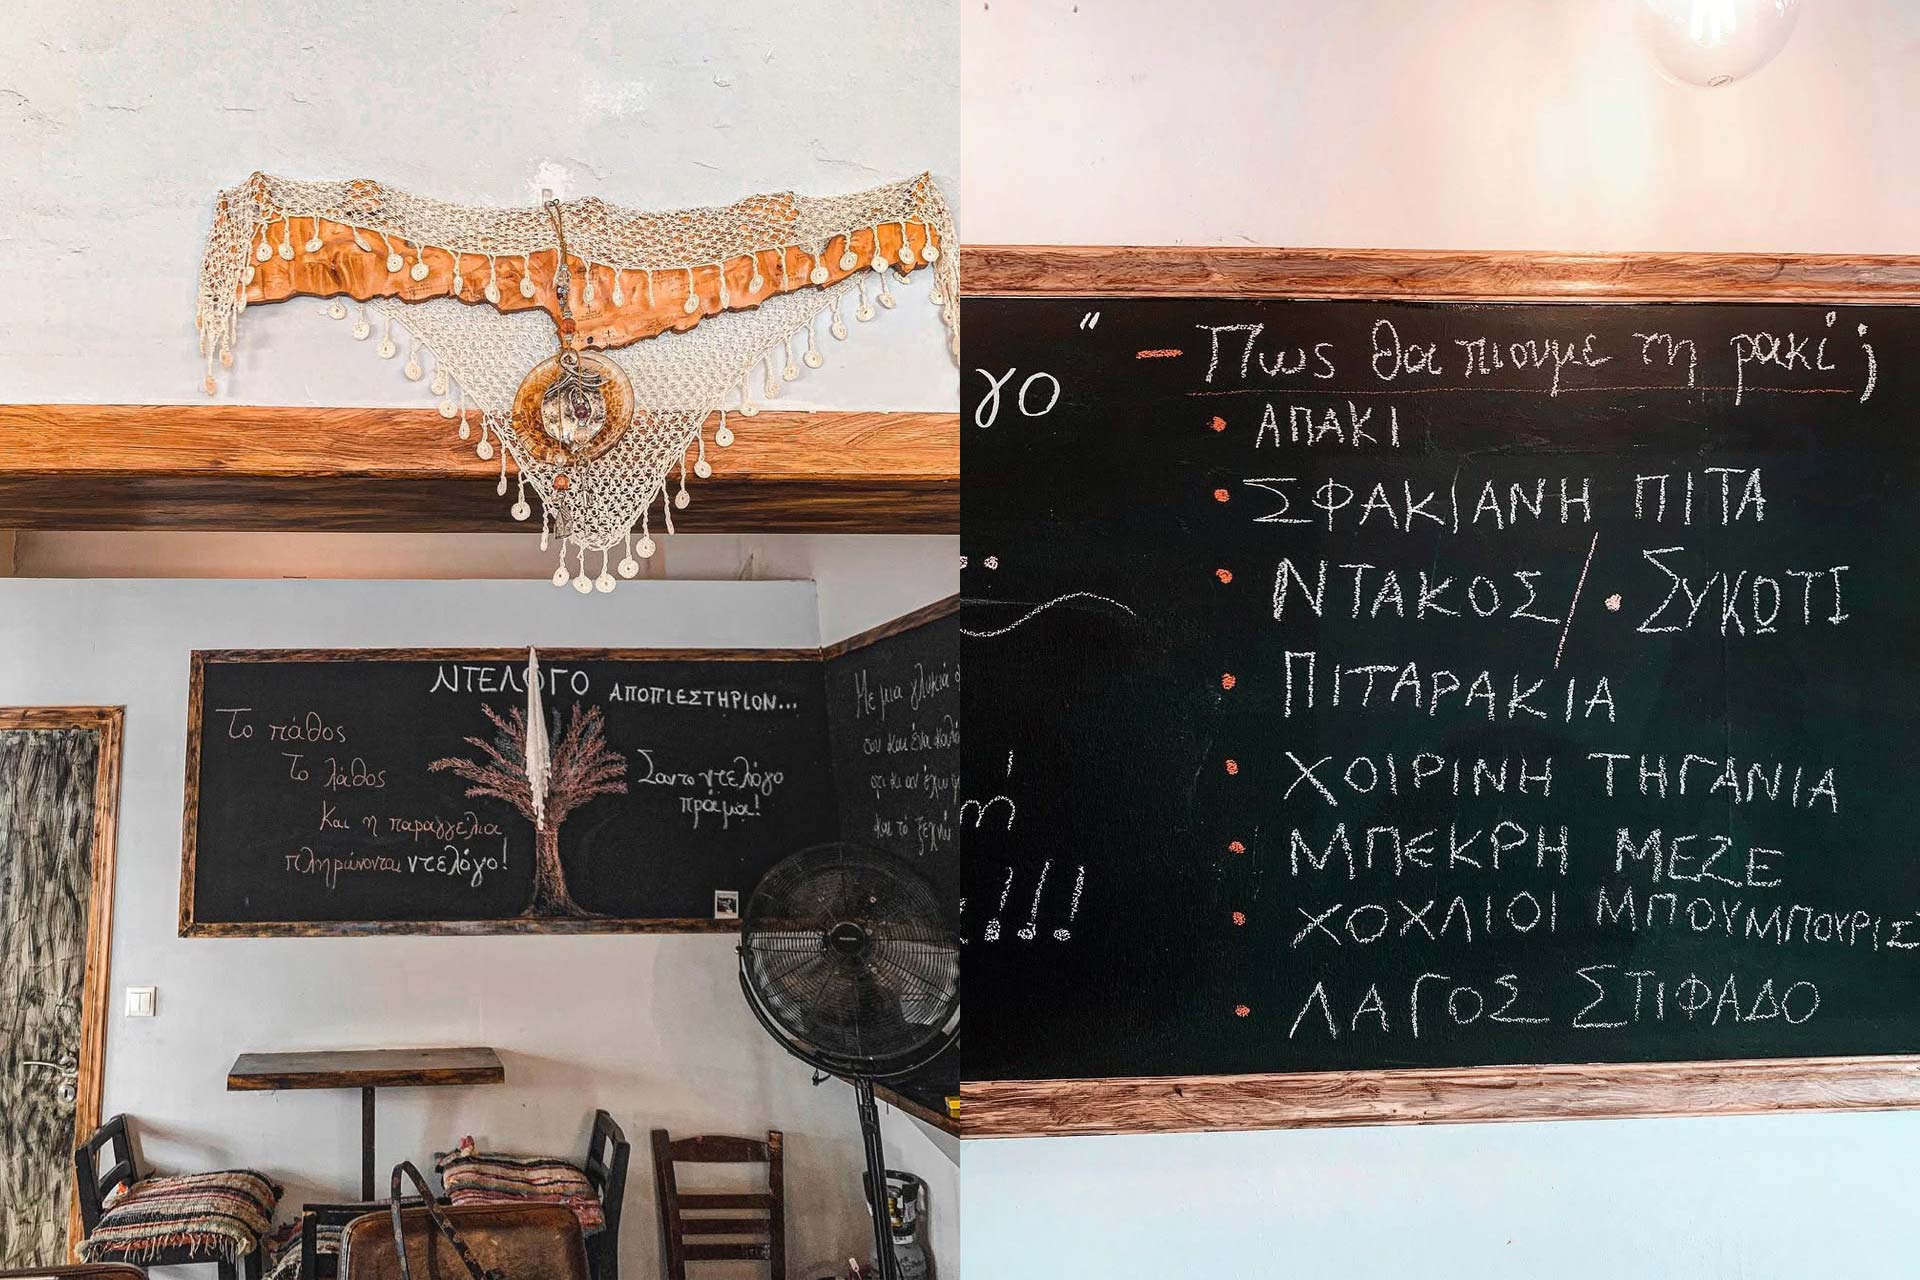 ΝΤΕΛΟΓΟ ΑΠΟΠΙΕΣΤΗΡΙΟΝ...
Το πάθος
Το λάθος
Και η παραγγελια
πληρώνονται ντελόγο!
Σαν το ντελόγο
πράμα!
Με μια γλυκιά
σου και ένα
και το ξεχνώ
γο
ή
!!!
" – Πως θα πιουμε τη ρακί ;
• ΑΠΑΚΙ
• ΣΦΑΚΙΑΝΗ ΠΙΤΑ
• ΝΤΑΚΟΣ / • ΣΥΚΩΤΙ
• ΠΙΤΑΡΑΚΙΑ
• ΧΟΙΡΙΝΗ ΤΗΓΑΝΙΑ
• ΜΠΕΚΡΗ ΜΕΖΕ
• ΧΟΧΛΙΟΙ ΜΠΟΥΜΠΟΥΡΙΣ
• ΛΑΓΟΣ ΣΤΙΦΑΔΟ